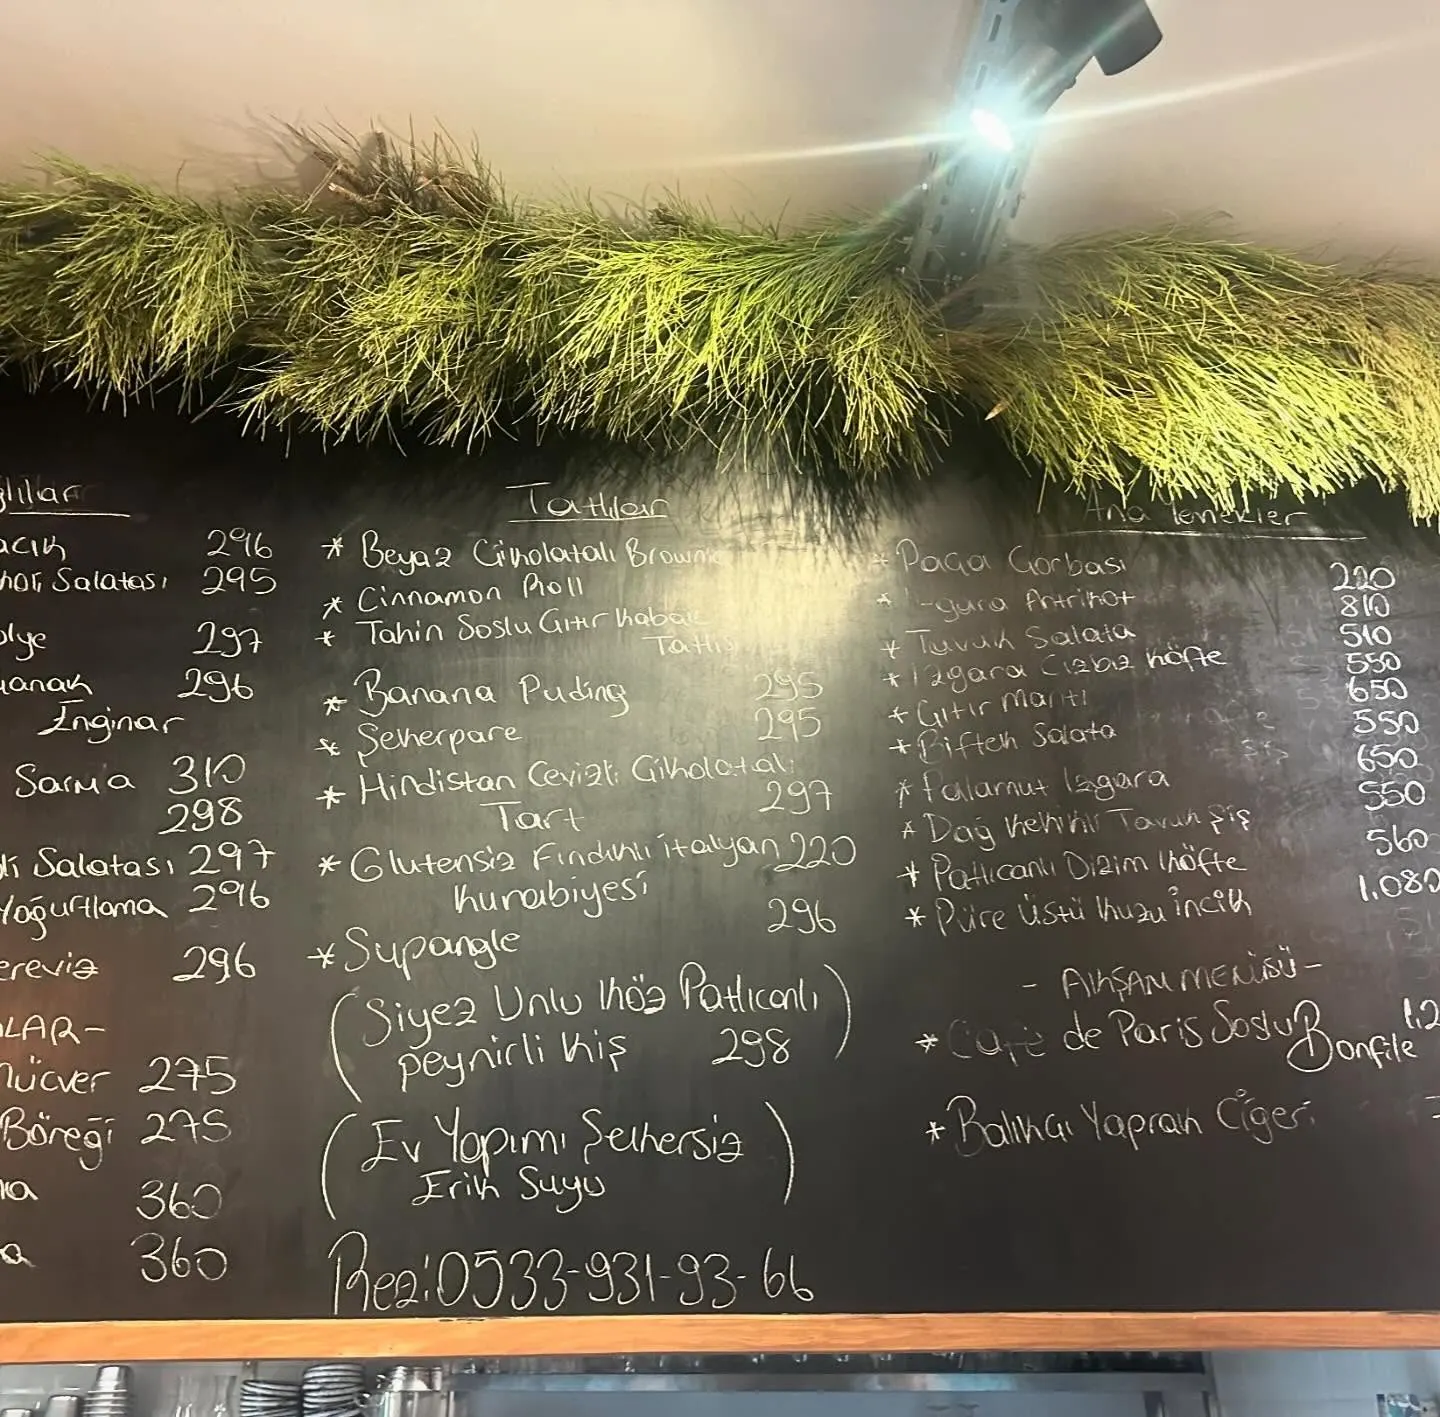 ğlılar
acık 296
hoş Salatası 295
olye 297
panak 296
Enginar
Sarma 310
298
li Salatası 297
Yoğurtlama 296
ereviz 296
LAR-
Mücver 275
Böreği 275
360
360
Tatlılar
* Beyaz Çikolatalı Brownie
* Cinnamon Roll
* Tahin Soslu Çıtır Kabak
Tatlısı
* Banana Puding 295
* Şekerpare 295
* Hindistan Cevizli Çikolatalı
Tart 297
* Glutensiz Fındıklı italyan 220
kurabiyesi
* Supangle 296
(Siyez Unlu Köz Patlıcanlı
peynirli kiş 298)
(Ev Yapımı Şekersiz
Erik Suyu)
Rez:0533-931-93-66
Ana Yemekler
* Paça Çorbası 220
* Izgara Antrikot 810
* Tavuk Salata 510
* Izgara Cızbız köfte 550
* Çıtır Mantı 650
* Biftek Salata 550
* Palamut Izgara 650
* Dağ Kekikli Tavuk Şiş 550
* Patlıcanlı Dizim Köfte 560
* Püre Üstü Kuzu İncik 1.080
- AKŞAM MENÜSÜ -
* Cafe de Paris Soslu Bonfile 1.2
* Balıkçı Yaprak Ciğeri